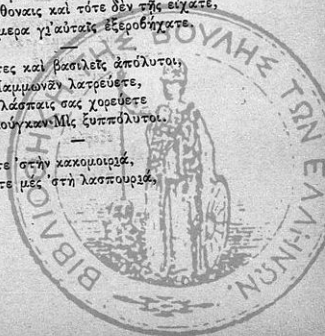 θοναις καὶ τότε δὲν τῇς εἴχατε,
μερα γι’αὐταῖς ἐξεροβήχατε,
τες καὶ βασιλεῖς ἀπόλυτοι,
Μαμμωνᾶν λατρεύετε,
λάσπαις σας χορεύετε
ούγκαν-Μὶς ξυππόλυτοι.
τε ’στὴν κακομοιριά,
τε μὲς ’στὴ λασπουριά,
ΒΙΒΛΙΟΘΗΚΗ ΤΗΣ ΒΟΥΛΗΣ ΤΩΝ ΕΛΛΗΝΩΝ